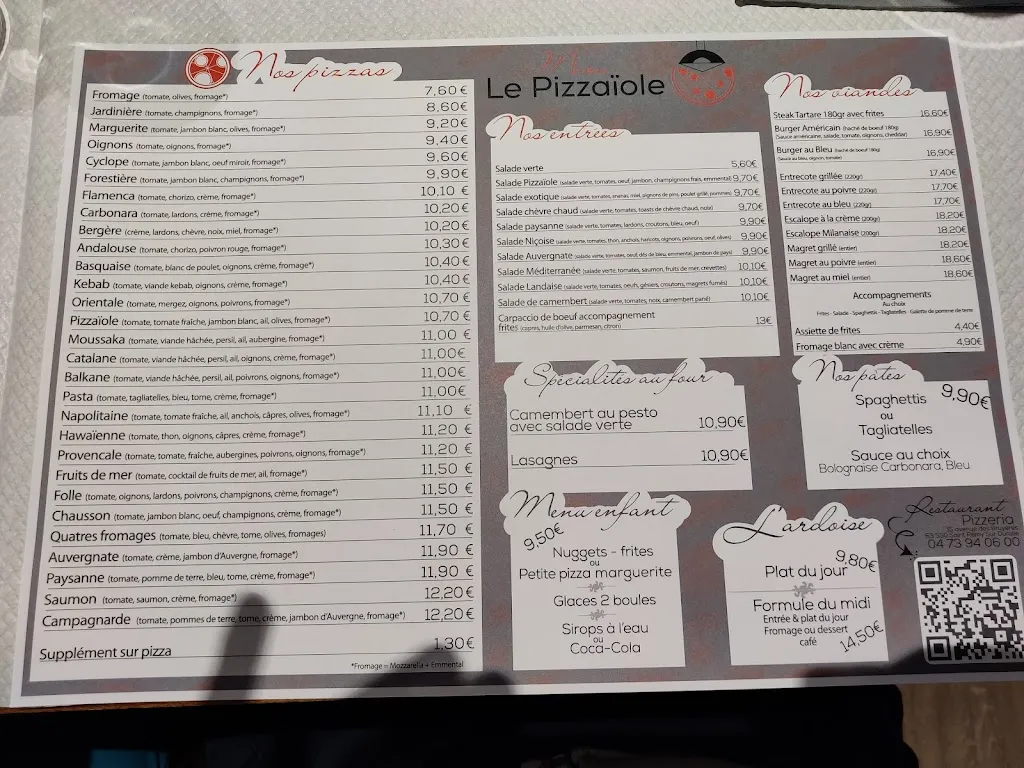 Nos pizzas
Fromage (tomate, olives, fromage*) 7,60€
Jardinière (tomate, champignons, fromage*) 8,60€
Marguerite (tomate, jambon blanc, olives, fromage*) 9,20€
Oignons (tomate, oignons, fromage*) 9,40€
Cyclope (tomate, jambon blanc, oeuf miroir, fromage*) 9,60€
Forestière (tomate, jambon blanc, champignons, fromage*) 9,90€
Flamenca (tomate, chorizo, crème, fromage*) 10,10 €
Carbonara (tomate, lardons, crème, fromage*) 10,20€
Bergère (crème, lardons, chèvre, noix, miel, fromage*) 10,20€
Andalouse (tomate, chorizo, poivron rouge, fromage*) 10,30€
Basquaise (tomate, blanc de poulet, oignons, crème, fromage*) 10,40€
Kebab (tomate, viande kebab, oignons, crème, fromage*) 10,40€
Orientale (tomate, mergez, oignons, poivrons, fromage*) 10,70 €
Pizzaïole (tomate, tomate fraîche, jambon blanc, ail, olives, fromage*) 10,70 €
Moussaka (tomate, viande hâchée, persil, ail, aubergine, fromage*) 11,00 €
Catalane (tomate, viande hâchée, persil, ail, oignons, crème, fromage*) 11,00€
Balkane (tomate, viande hâchée, persil, ail, poivrons, oignons, fromage*) 11,00€
Pasta (tomate, tagliatelles, bleu, tome, crème, fromage*) 11,00€
Napolitaine (tomate, tomate fraîche, ail, anchois, câpres, olives, fromage*) 11,10 €
Hawaïenne (tomate, thon, oignons, câpres, crème, fromage*) 11,20 €
Provencale (tomate, tomate, fraîche, aubergines, poivrons, oignons, fromage*) 11,20 €
Fruits de mer (tomate, cocktail de fruits de mer, ail, fromage*) 11,50 €
Folle (tomate, oignons, lardons, poivrons, champignons, crème, fromage*) 11,50 €
Chausson (tomate, jambon blanc, oeuf, champignons, crème, fromage*) 11,50 €
Quatres fromages (tomate, bleu, chèvre, tome, olives, fromages) 11,70 €
Auvergnate (tomate, crème, jambon d'Auvergne, fromage*) 11,90 €
Paysanne (tomate, pomme de terre, bleu, tome, crème, fromage*) 11,90 €
Saumon (tomate, saumon, crème, fromage*) 12,20€
Campagnarde (tomate, pommes de terre, tome, crème, jambon d'Auvergne, fromage*) 12,20€
Supplément sur pizza 1,30€
*Fromage = Mozzarella + Emmental
Le Pizzaïole
Nos entrées
Salade verte 5,60€
Salade Pizzaïole (salade verte, tomates, oeuf, jambon, champignons frais, emmental) 9,70€
Salade exotique (salade verte, tomates, ananas, maïs, oignons de pins, poulet grillé, pommes) 9,70€
Salade chèvre chaud (salade verte, tomates, toasts de chèvre chaud, noix) 9,70€
Salade paysanne (salade verte, tomates, lardons, croutons, bleu, oeuf) 9,90€
Salade Niçoise (salade verte, tomates, thon, anchois, haricots, oignons, poivrons, oeuf, olives) 9,90€
Salade Auvergnate (salade verte, tomates, oeuf, dés de bleu, emmental, jambon de pays) 9,90€
Salade Méditerranée (salade verte, tomates, saumon, fruits de mer, crevettes) 10,10€
Salade Landaise (salade verte, tomates, oeufs, gésiers, croutons, magrets fumés) 10,10€
Salade de camembert (salade verte, tomates, noix, camembert pané) 10,10€
Carpaccio de boeuf accompagnement
frites (copres, huile d'olive, parmesan, citron) 13€
Spécialités au four
Camembert au pesto
avec salade verte 10,90€
Lasagnes 10,90€
Menu enfant
9,50€
Nuggets - frites
ou
Petite pizza marguerite
Glaces 2 boules
Sirops à l'eau
ou
Coca-Cola
Nos viandes
Steak Tartare 180gr avec frites 16,60€
Burger Américain (haché de boeuf 180g) 16,90€
(Sauce américaine, salade, tomate, oignons, cheddar)
Burger au Bleu (haché de boeuf 180g) 16,90€
(Sauce au bleu, oignon, tomate)
Entrecote grillée (220gr) 17,40€
Entrecote au poivre (220gr) 17,70€
Entrecote au bleu (220gr) 17,70€
Escalope à la crème (200gr) 18,20€
Escalope Milanaise (200gr) 18,20€
Magret grillé (entier) 18,20€
Magret au poivre (entier) 18,60€
Magret au miel (entier) 18,60€
Accompagnements
Au choix
Frites - Salade - Spaghettis - Tagliatelles - Galette de pomme de terre
Assiette de frites 4,40€
Fromage blanc avec crème 4,90€
Nos pâtes
Spaghettis 9,90€
ou
Tagliatelles
Sauce au choix
Bolognaise Carbonara, Bleu
L'ardoise
9,80€
Plat du jour
Formule du midi
Entrée & plat du jour
Fromage ou dessert
café
14,50€
Restaurant
Pizzeria
15 avenue des Bruyères
63 550 Saint Rémy Sur Durolle
04 73 94 06 00